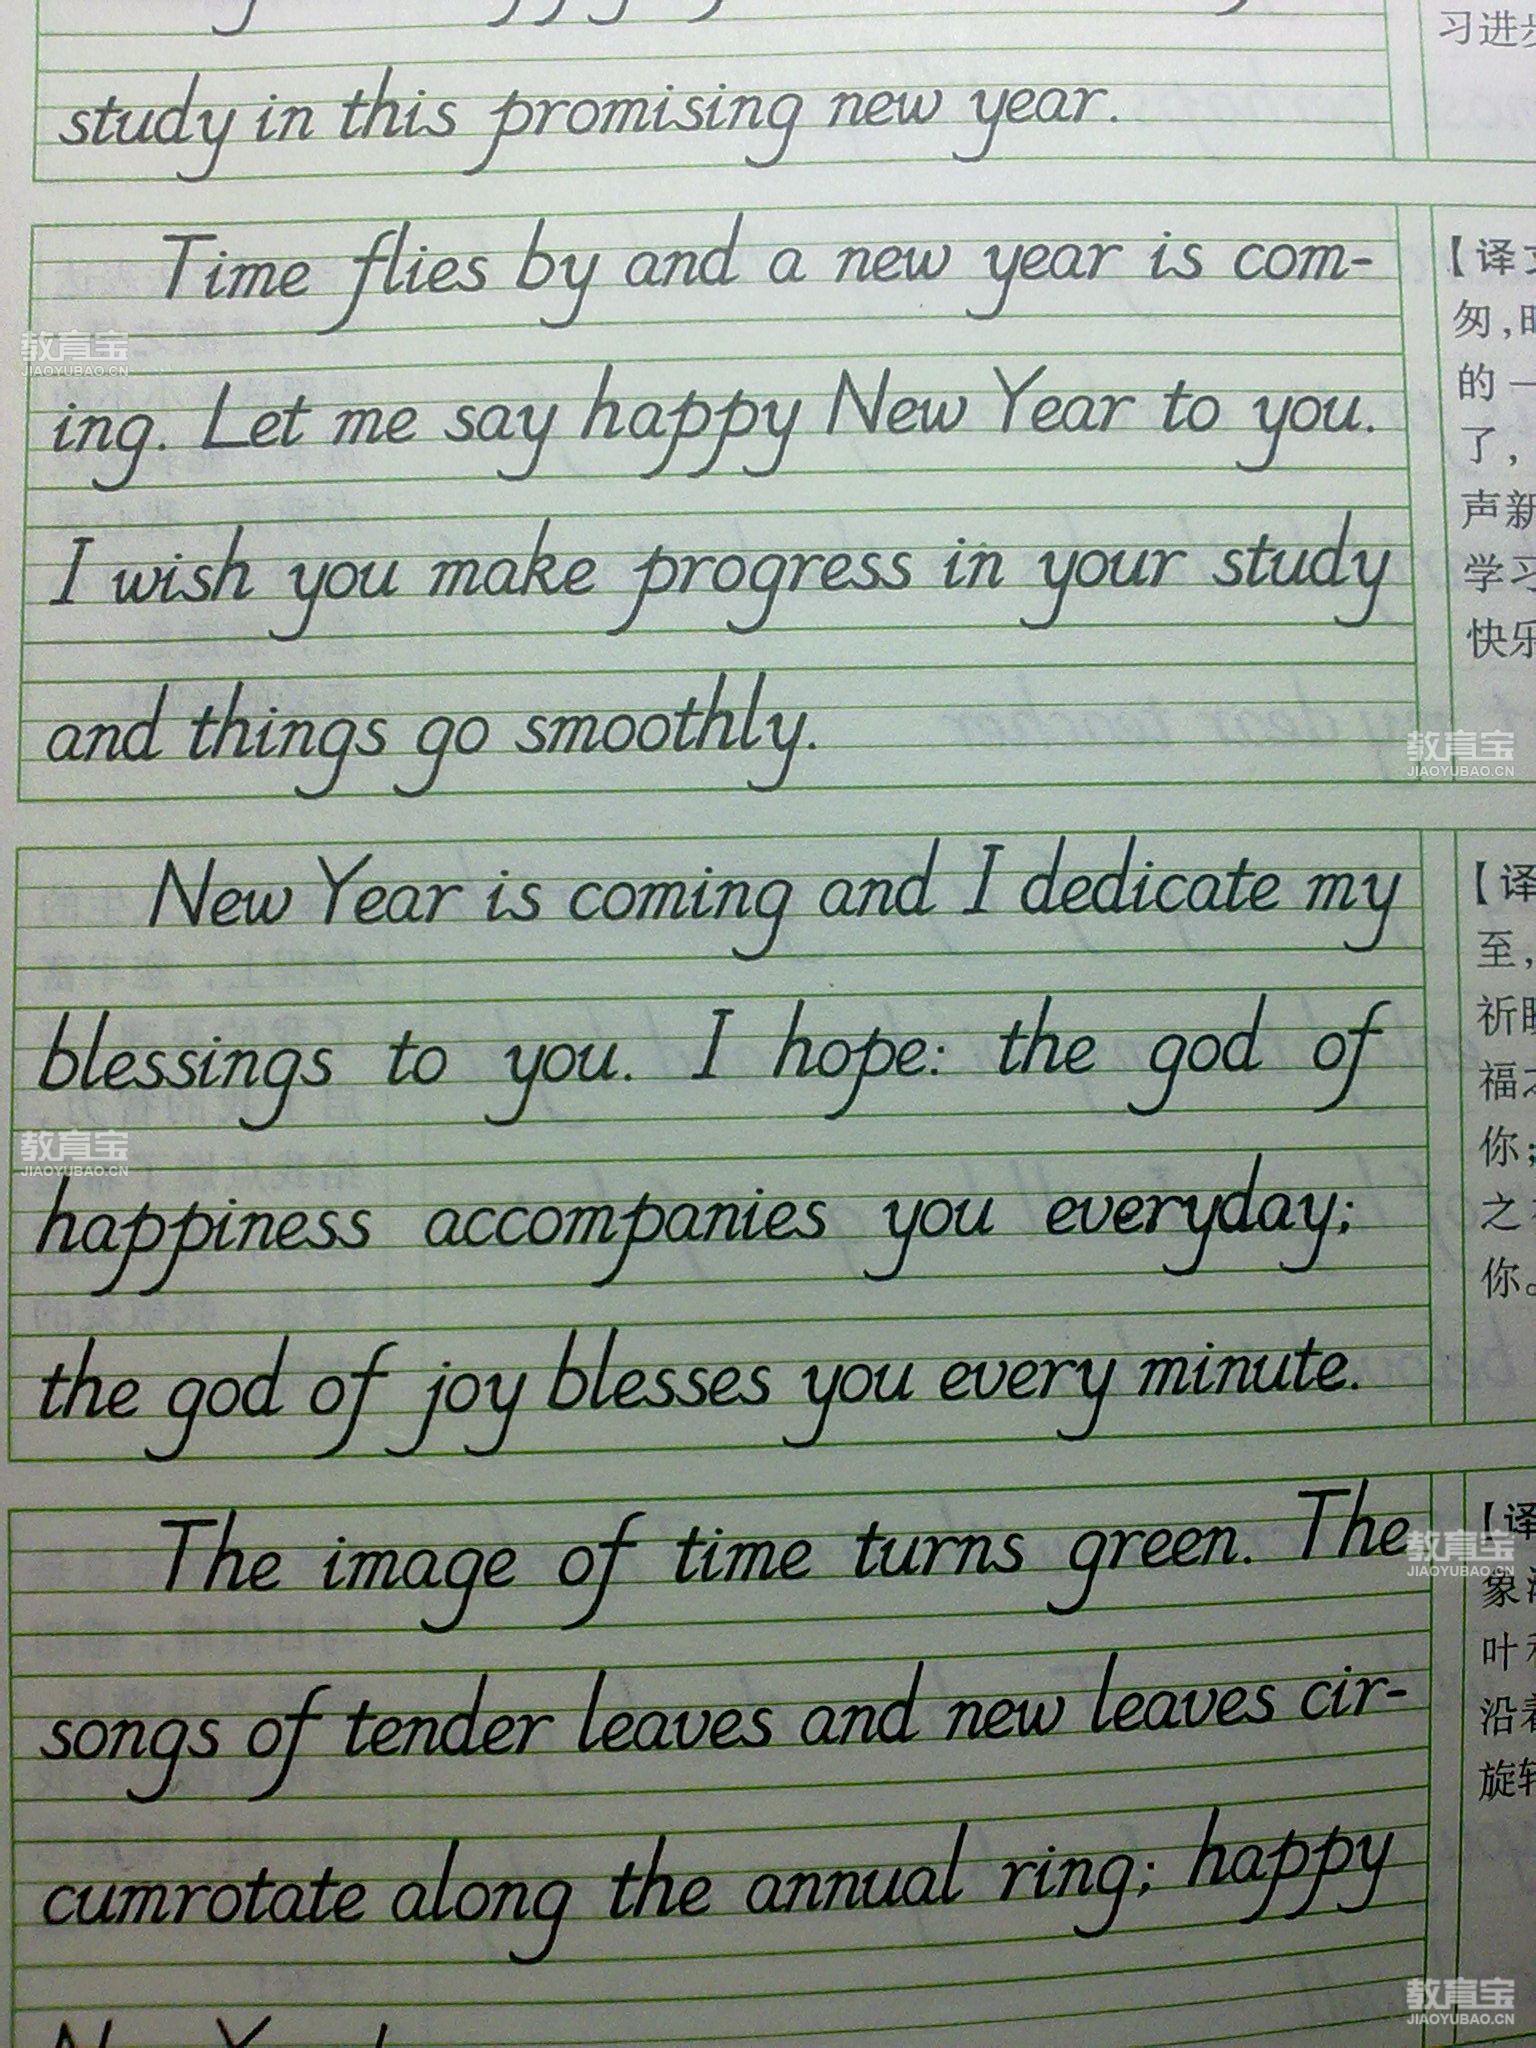 study in this promising new year.
习进
Time flies by and a new year is com-
ing. Let me say happy New Year to you.
I wish you make progress in your study
and things go smoothly.
【译文
匆,时
的一
了,
声新
学习
快乐
New Year is coming and I dedicate my
blessings to you. I hope: the god of
happiness accompanies you everyday;
the god of joy blesses you every minute.
【译
至,
祈
福
你;
之
你。
The image of time turns green. The
songs of tender leaves and new leaves cir-
cumrotate along the annual ring; happy
【译
象
叶
沿着
旋转
教育宝
JIAOYUBAO.CN
教育宝
JIAOYUBAO.CN
教育宝
JIAOYUBAO.CN
教育宝
JIAOYUBAO.CN
教育宝
JIAOYUBAO.CN